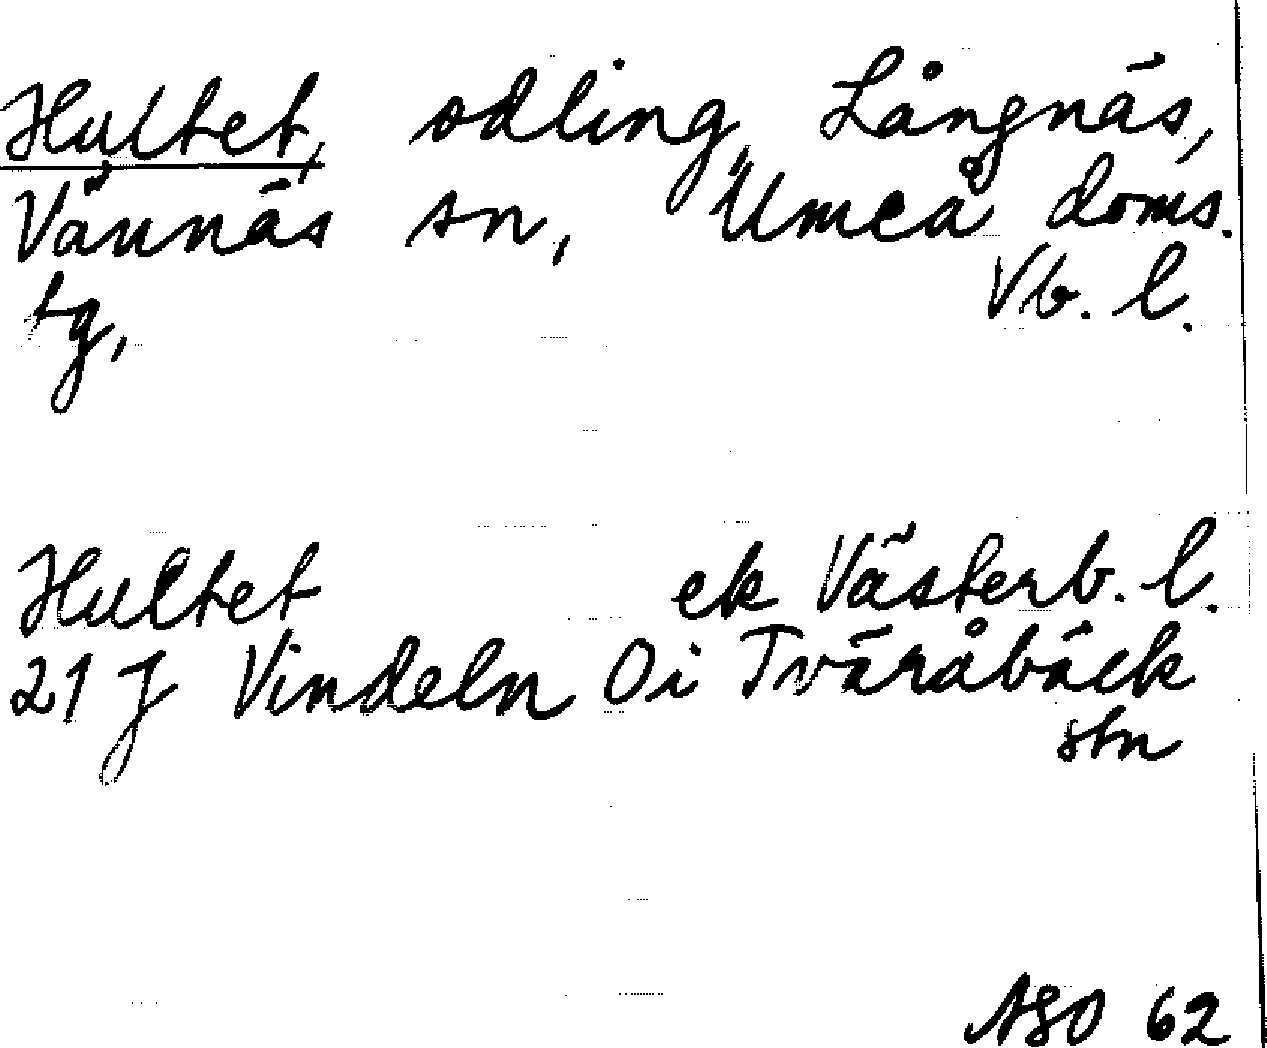 Hultet, odling, Långnäs,
Vännäs sn, Umeå doms.
tg, Vb. l.
Hultet ek Västerb. l.
21 J Vindeln Oi Tväråbäck
stn
ASO 62